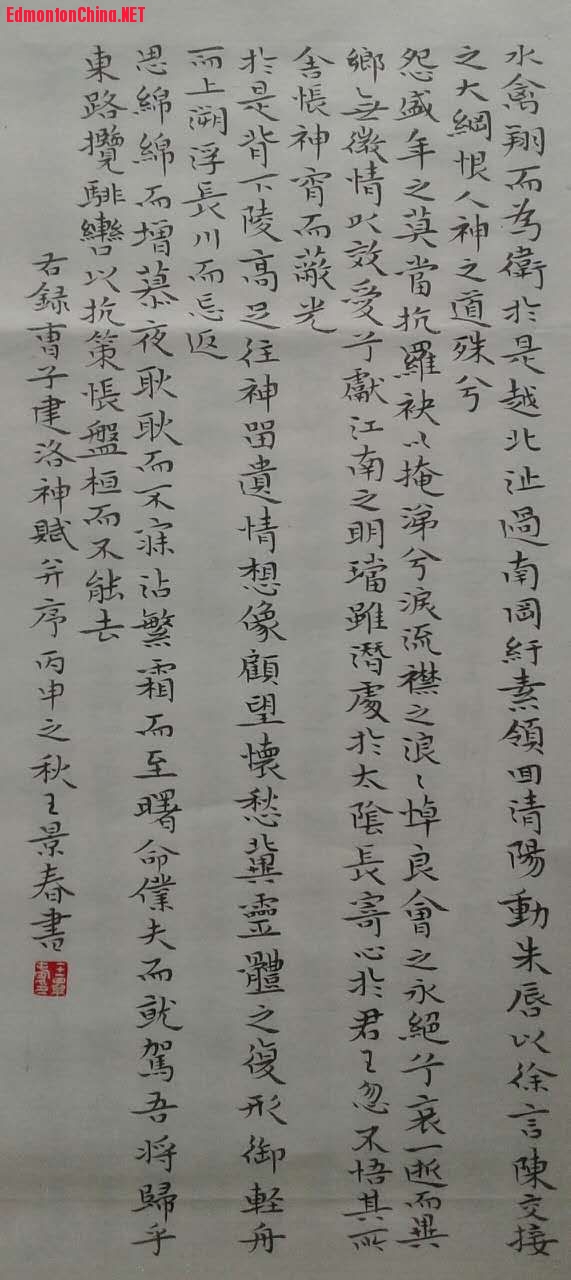 EdmontonChina.NET
水禽翔而為衛於是越北沚過南岡紆素領回清陽動朱唇以徐言陳交接
之大綱恨人神之道殊兮
怨盛年之莫當抗羅袂以掩涕兮淚流襟之浪〻悼良會之永絕兮哀一逝而異
鄉無微情以效愛兮獻江南之明璫雖潛處於太陰長寄心於君王忽不悟其所
舍悵神宵而蔽光
於是背下陵高足往神留遺情想像顧望懷愁冀靈體之復形御輕舟
而上溯浮長川而忘返
思綿綿而增慕夜耿耿而不寐沾繁霜而至曙命僕夫而就駕吾將歸乎
東路攬騑轡以抗策悵盤桓而不能去
右錄曹子建洛神賦并序丙申之秋王景春書